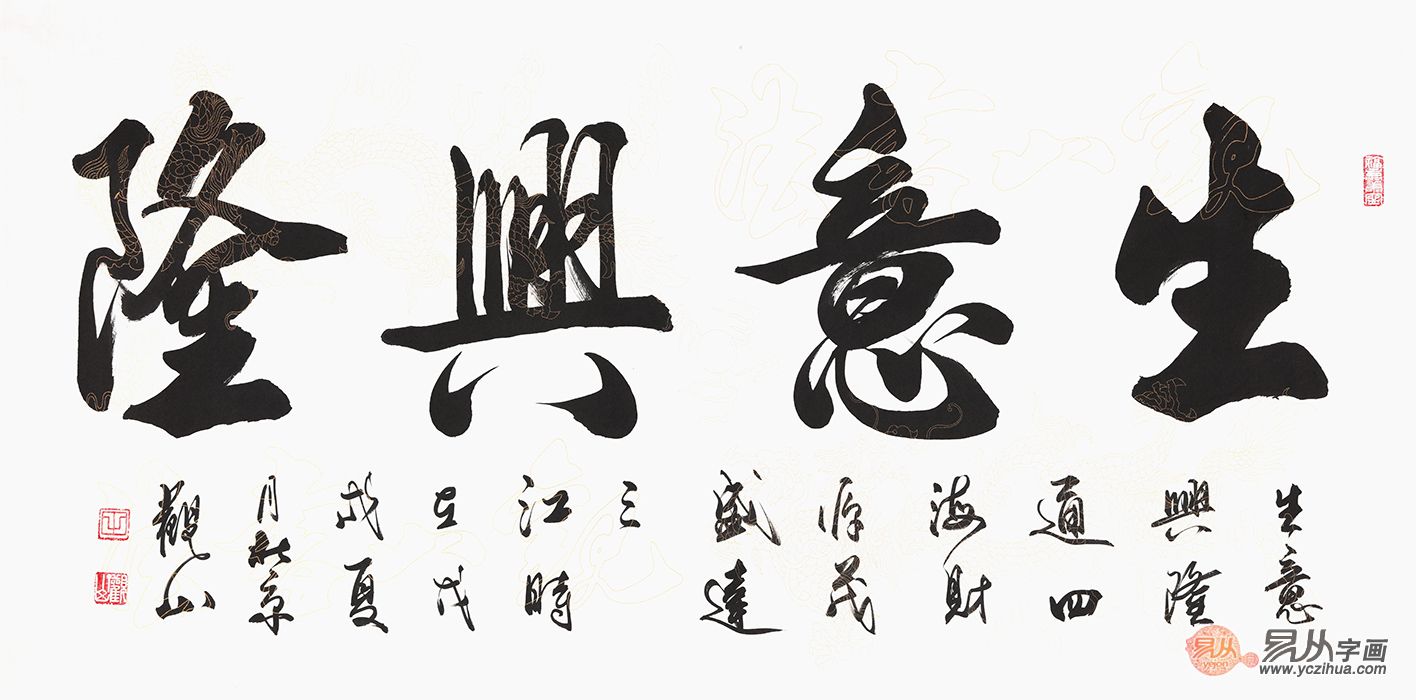 生意興隆
生意
興隆
通四
海財
源茂
盛達
三
江時
在戊
戌夏
月北京
觀山
易从字画
www.yczihua.com